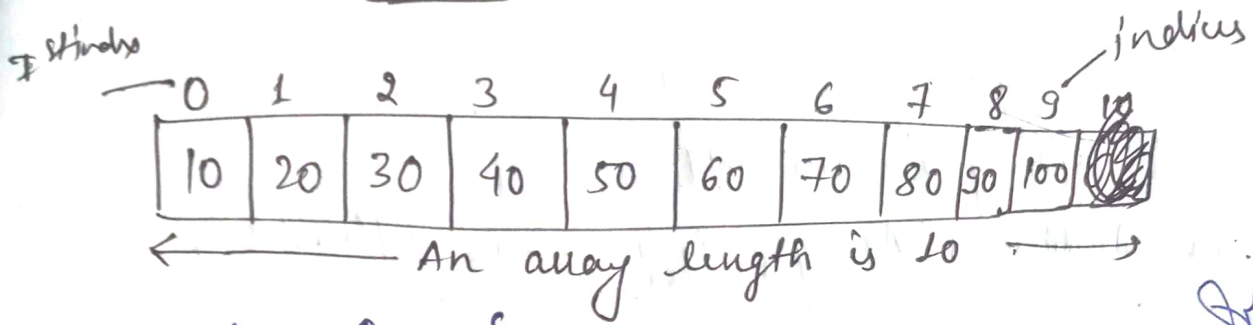 Ist index
indices
0 1 2 3 4 5 6 7 8 9
10 20 30 40 50 60 70 80 90 100
An array length is 10